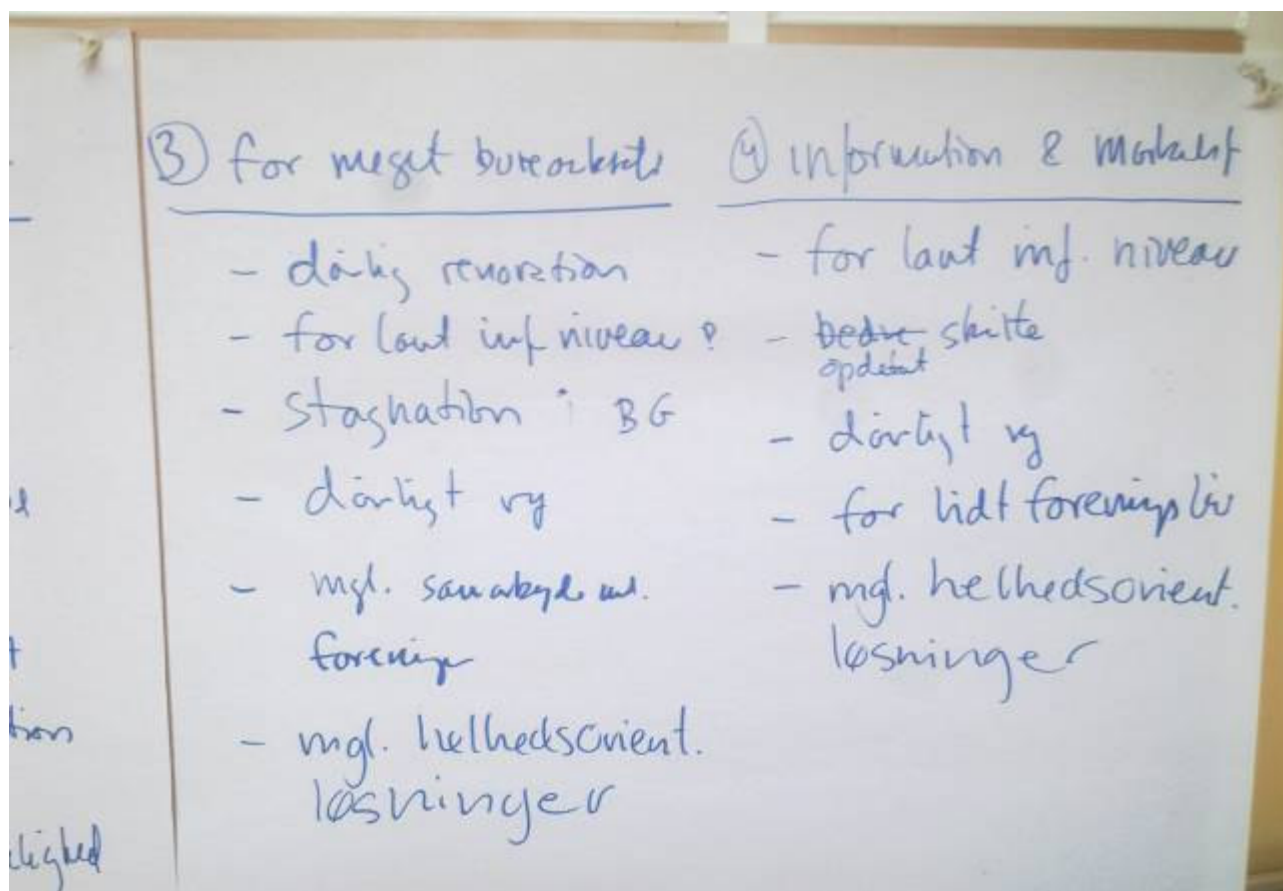 ③ for meget bureaukrati
- dårlig renovation
- for lavt inf. niveau ?
- stagnation i BG
- dårligt ry
- mgl. samarbejde ml.
forening
- mgl. helhedsorient.
løsninger
④ information &
- for lavt inf. niveau
- bedre skilte
opdateret
- dårligt ry
- for lidt foreningsliv
- mgl. helhedsorient.
løsninger
tion
lighed